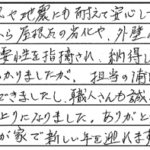 や地震にも耐えて安心し
ら屋根瓦の劣化や、外壁
要性を指摘され、納得し
かりましたが、担当の浦
できましたし、職人さんも誠
上りになりました。ありがと
が家で新しい年を迎えます